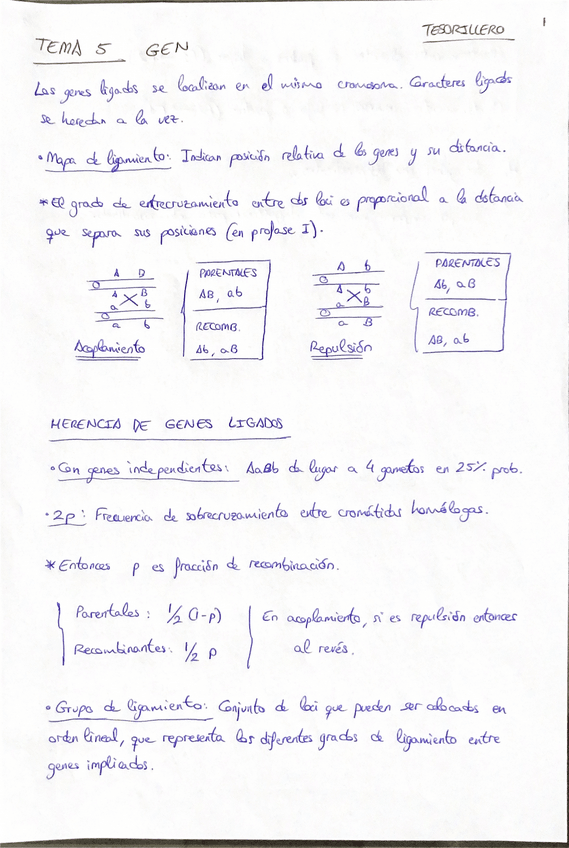 TESORILLERO
1
TEMA 5 GEN
Los genes ligados se localizan en el mismo cromosoma. Caracteres ligados
se heredan a la vez.
• Mapa de ligamiento: Indican posición relativa de los genes y su distancia.
* El grado de entrecruzamiento entre dos loci es proporcional a la distancia
que separa sus posiciones (en profase I).
A D
A B
a b
a b
Acoplamiento
PARENTALES
AB, ab
RECOMB.
Ab, aB
A b
A b
a B
a B
Repulsión
PARENTALES
Ab, aB
RECOMB.
AB, ab
HERENCIA DE GENES LIGADOS
• Con genes independientes: AaBb da lugar a 4 gametos en 25% prob.
• 2p: Frecuencia de sobrecruzamiento entre cromátidas homólogas.
* Entonces p es fracción de recombinación.
Parentales: 1/2 (1-p)
Recombinantes: 1/2 p
En acoplamiento, si es repulsión entonces
al revés.
• Grupo de ligamiento: Conjunto de loci que pueden ser colocados en
orden lineal, que representa los diferentes grados de ligamiento entre
genes implicados.